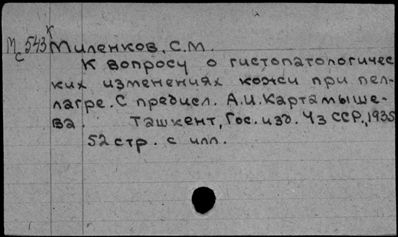 М 543 к Миленков, С.М.
с
К вопросу о гистопатологичес
ких изменениях кожи при пел-
лагре. С предисл. А.И. Картамыше-
ва. Ташкент, Гос. изд. Уз ССР, 1935
52 стр. с илл.